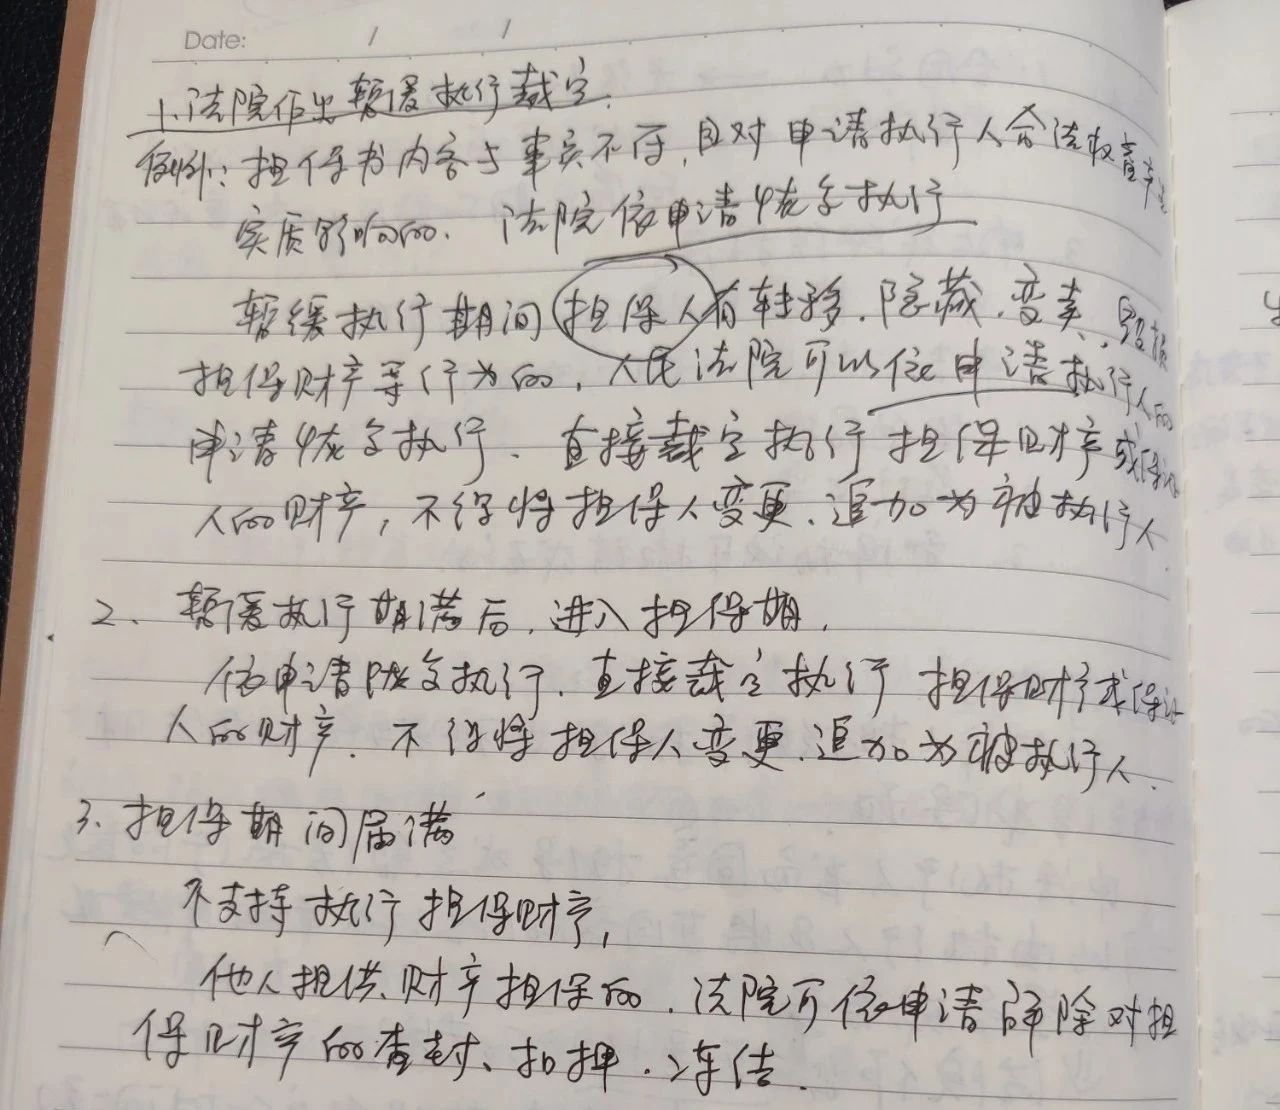 Date: / /
1、法院作出暂缓执行裁定.
例外：担保书内容与事实不符,且对申请执行人合法权益产生
实质影响的、法院依申请恢复执行
暂缓执行期间担保人有转移.隐藏.变卖.毁损
担保财产等行为的,人民法院可以依申请执行人的
申请恢复执行、直接裁定执行担保财产或保证
人的财产,不得将担保人变更、追加为被执行人
2、暂缓执行期满后.进入担保期,
依申请恢复执行.直接裁定执行担保财产或保证
人的财产.不得将担保人变更.追加为被执行人.
3、担保期间届满
不支持执行担保财产,
他人提供财产担保的.法院可依申请解除对担
保财产的查封、扣押.冻结.